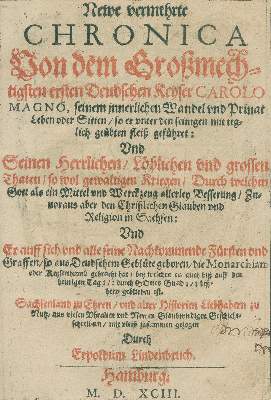 Newe vermehrte
CHRONICA
Von dem Großmech-
tigsten ersten Deudschen Keyser CAROLO
MAGNO, seinem innerlichen Wandel vnd Priuat
Leben oder Sitten / so er vnter den seinigen mit teg-
lich geübten fleiß geführet:
Vnd
Seinen Herrlichen / Löblichen vnd grossen
Thaten / so wol gewaltigen Kriegen / Durch welchen
Gott als ein Mittel vnd Werckzeug allerley Besserung / Zu-
voraus aber den Christlichen Glauben vnd
Religion in Sachsen:
Vnd
Er auff sich vnd alle seine Nachkommende Fürsten vnd
Graffen / so aus Deudschem Geblüte geboren / die Monarchiam
oder Keyserthumb gebracht hat / bey welchen es auch biß auff den
heutigen Tag / durch GOttes Gnad /
hero geblieben ist.
Sachsenland zu Ehren / vnd aller Historien Liebhabern zu
Nutz / aus vielen Vhralten vnd Newen Glaubwirdigen Geschicht-
schreibern / mit vleiß zusammen gezogen
Durch
Erpoldum Lindenbruch.
Hamburg.
M. D. XCIII.